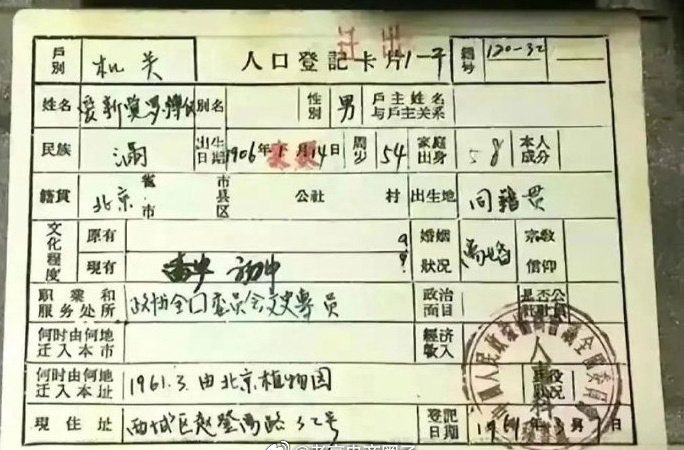 户别 机关 人口登記卡片 籍号 120-32
姓名 爱新觉罗溥仪 别名 性别 男 戶主姓名与戶主关系
民族 滿 出生日期 1906年 月14日 周岁 54 家庭出身 本人成分
籍貫 北京 省市 市县区 公社 村 出生地 同籍贯
文化程度 原有 婚姻狀况 离婚 宗敎信仰
現有 初中
职業和服务处所 政协全口委员会文史專员 政治面目 是否公社社員
何时由何地迁入本市 經济收入
何时由何地迁入本址 1961.3.由北京植物园
現住址 西城区赵登禹路32号 登記日期 1961年3月